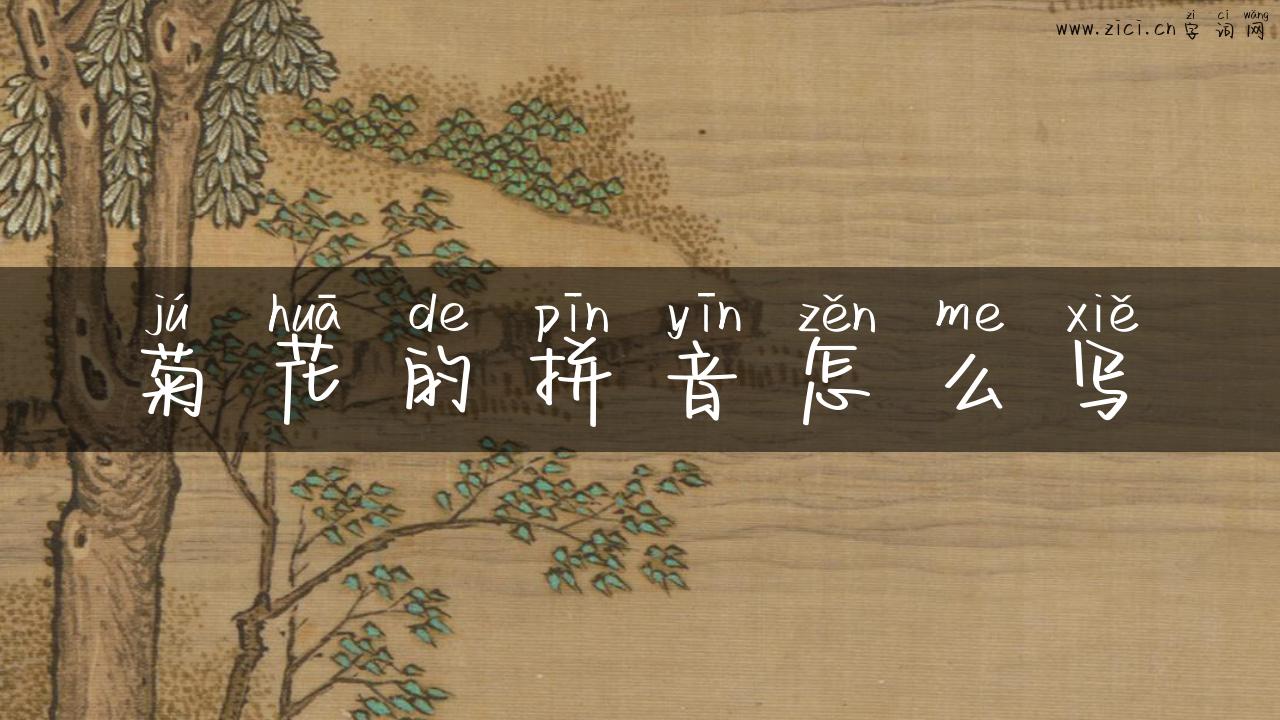 zì cí wǎng
www.zici.cn 字词网
jú huā de pīn yīn zěn me xiě
菊花的拼音怎么写